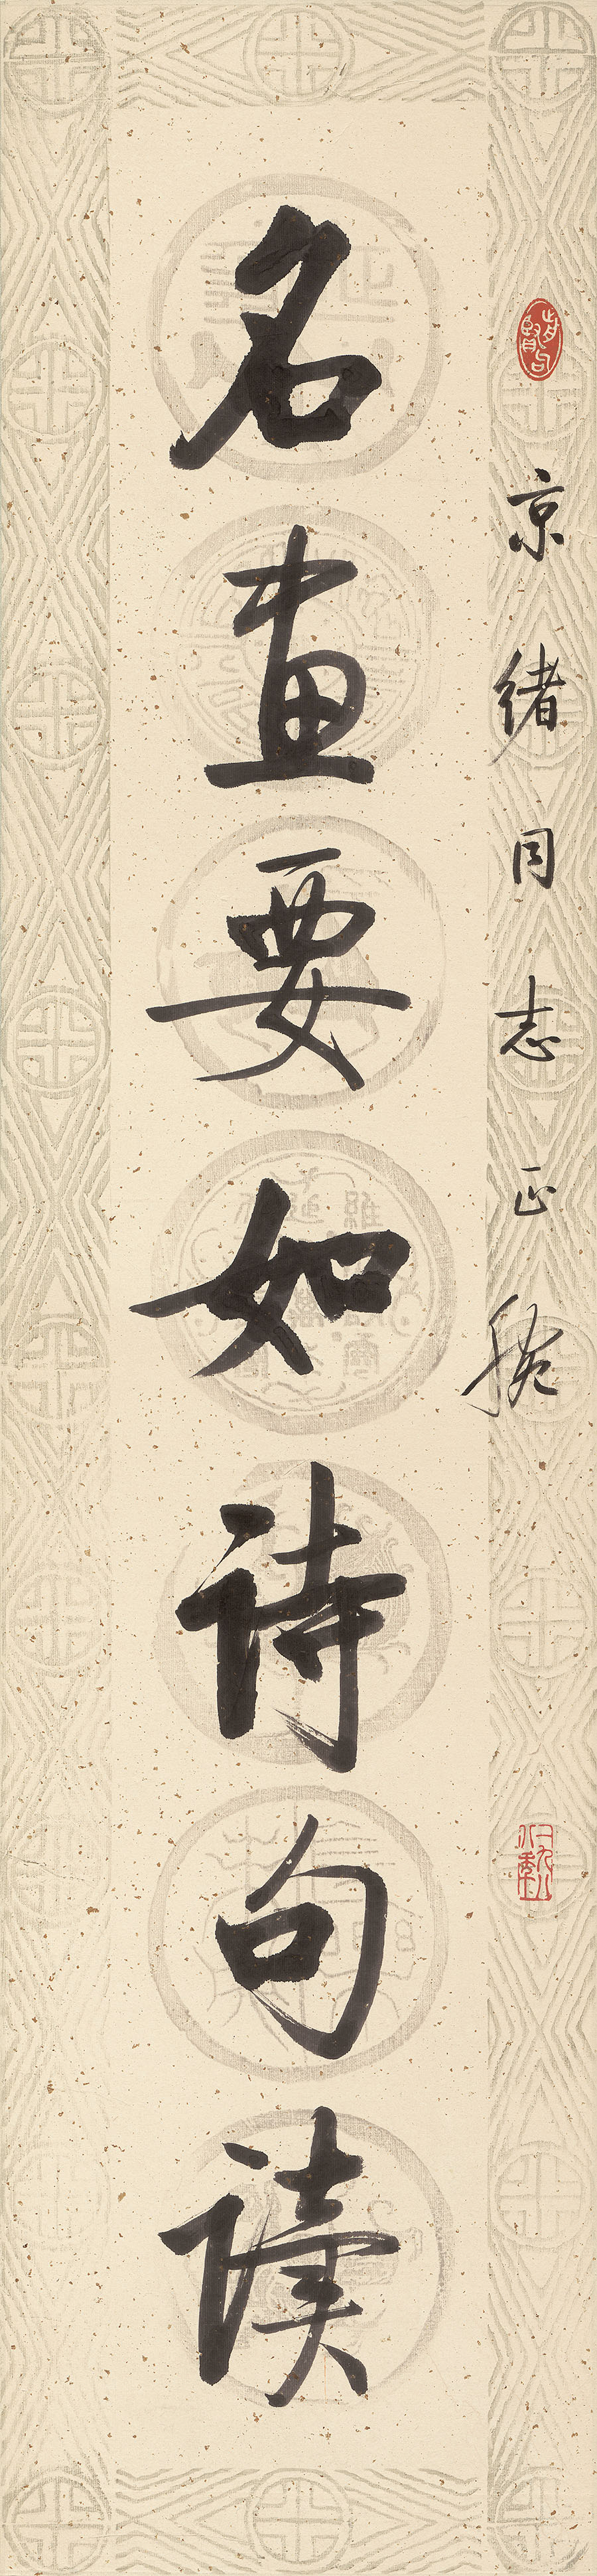 京绪同志正腕
名画要如诗句读